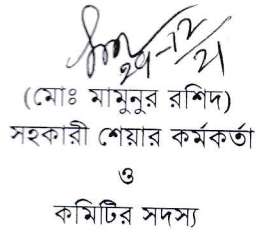 ২৭-১২-২১
(মোঃ মামুনুর রশিদ)
সহকারী শেয়ার কর্মকর্তা
ও
কমিটির সদস্য